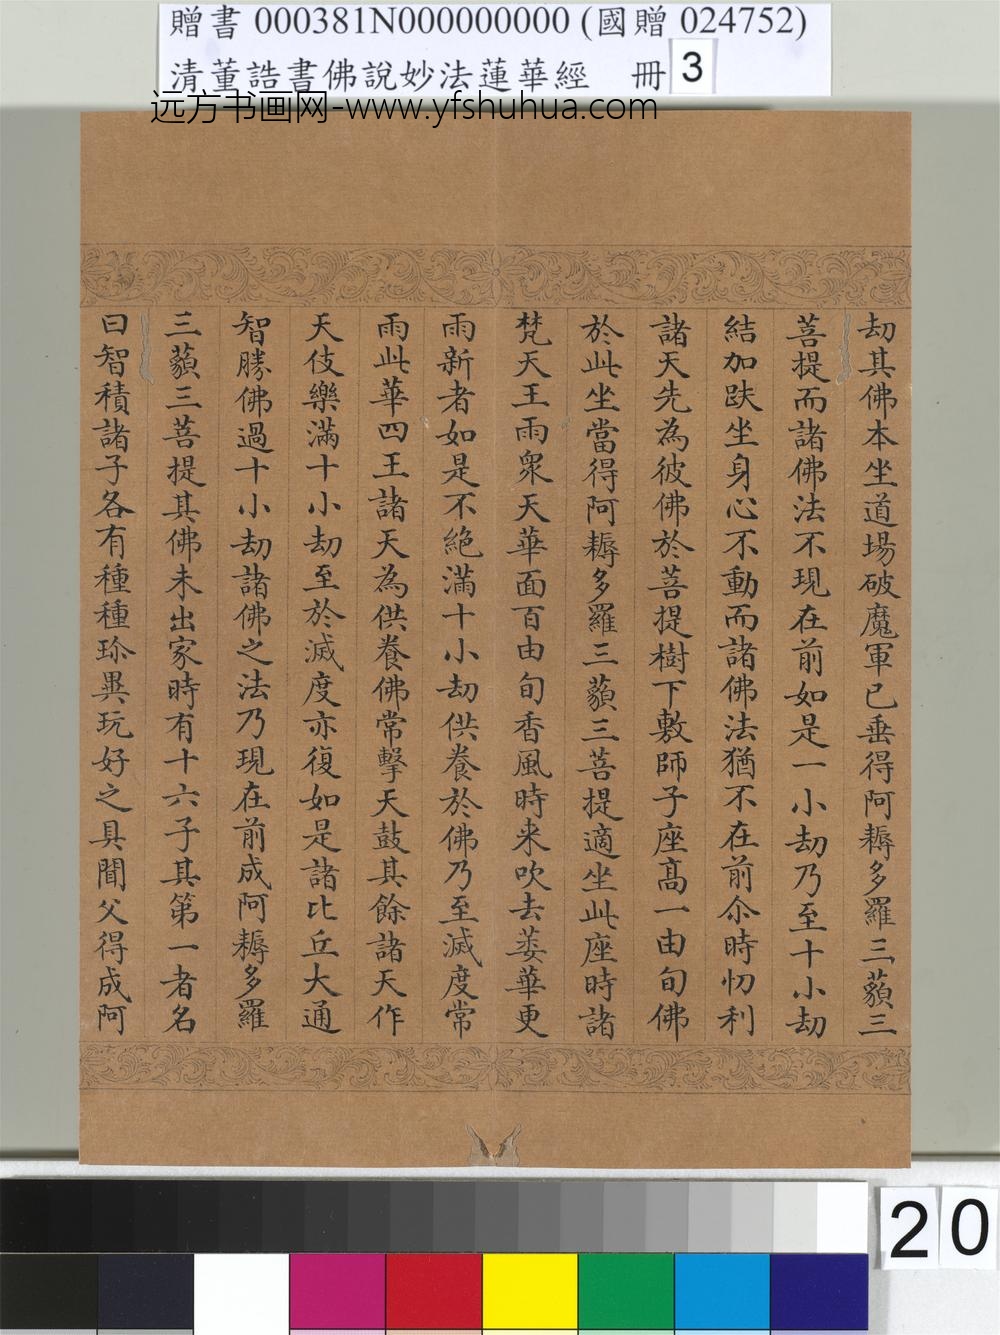 贈書 000381N000000000 (國贈 024752)
清董誥書佛說妙法蓮華經 冊 3
远方书画网-www.yfshuhua.com
劫其佛本坐道場破魔軍已垂得阿耨多羅三藐三
菩提而諸佛法不現在前如是一小劫乃至十小劫
結加趺坐身心不動而諸佛法猶不在前尒時忉利
諸天先為彼佛於菩提樹下敷師子座高一由旬佛
於此坐當得阿耨多羅三藐三菩提適坐此座時諸
梵天王雨眾天華面百由旬香風時来吹去萎華更
雨新者如是不絶滿十小劫供養於佛乃至滅度常
雨此華四王諸天為供養佛常擊天鼓其餘諸天作
天伎樂滿十小劫至於滅度亦復如是諸比丘大通
智勝佛過十小劫諸佛之法乃現在前成阿耨多羅
三藐三菩提其佛未出家時有十六子其第一者名
曰智積諸子各有種種珎異玩好之具聞父得成阿
20